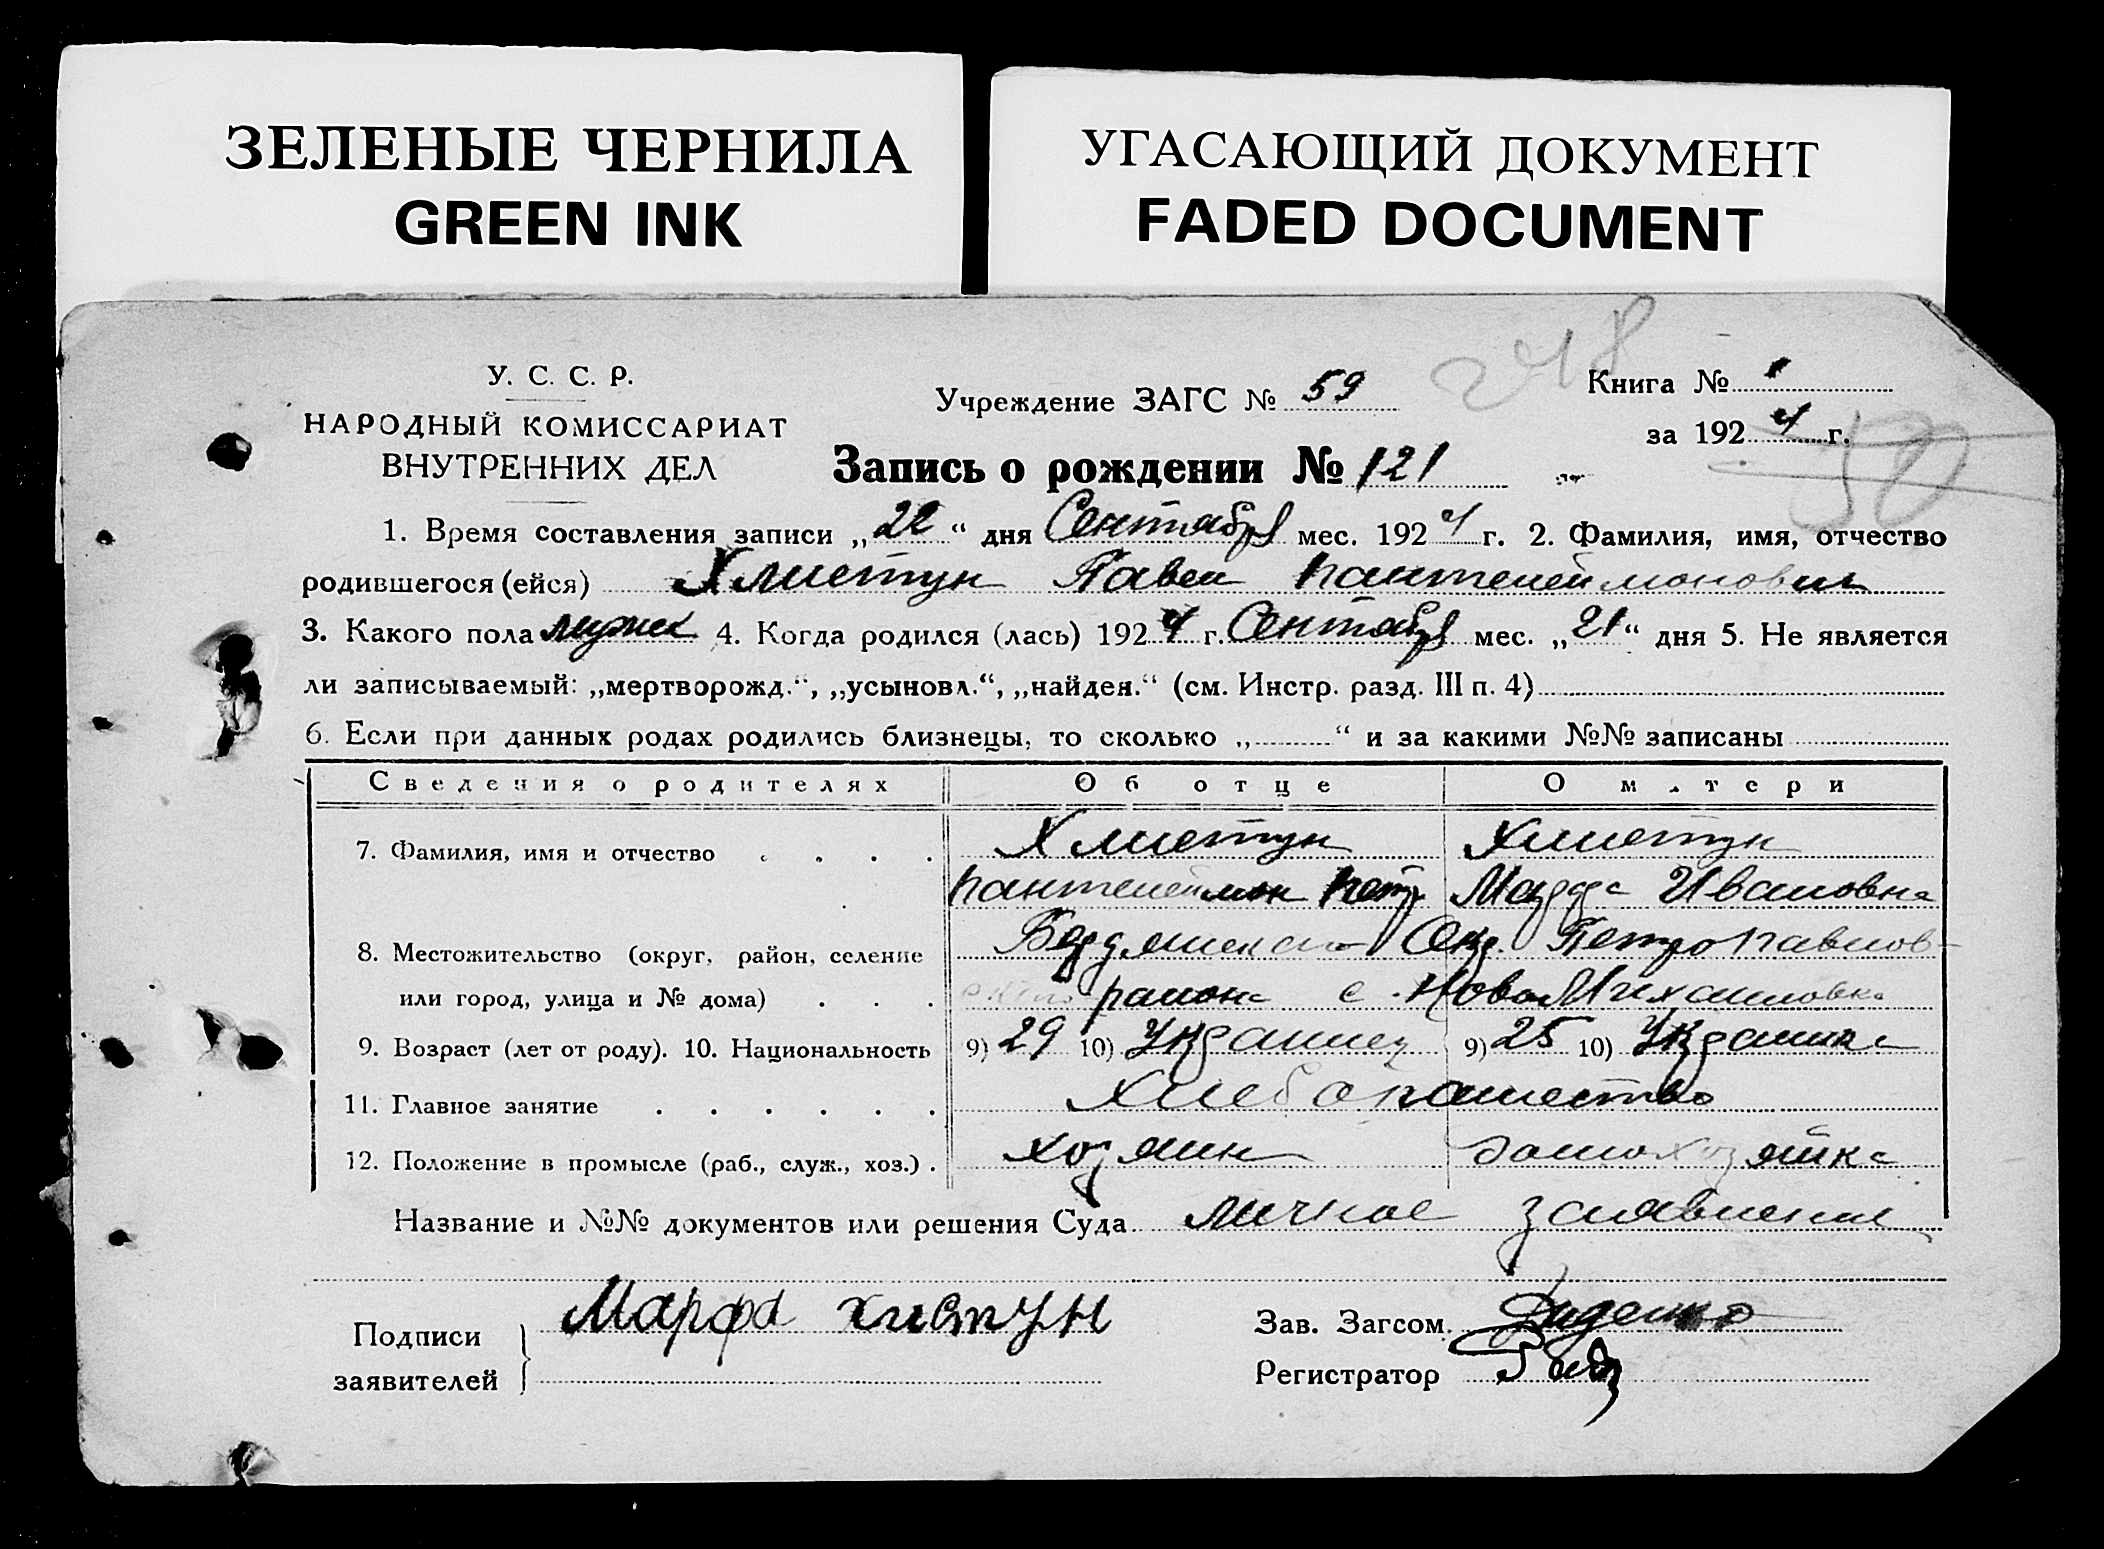 ЗЕЛЕНЫЕ ЧЕРНИЛА
GREEN INK
УГАСАЮЩИЙ ДОКУМЕНТ
FADED DOCUMENT
248
У. С. С. Р.
НАРОДНЫЙ КОМИССАРИАТ
ВНУТРЕННИХ ДЕЛ
Учреждение ЗАГС № 59
Книга № 1
за 1924 г.
50
Запись о рождении № 121
1. Время составления записи „22“ дня Сентября мес. 1924 г. 2. Фамилия, имя, отчество
родившегося (ейся) Хлистун Павел Пантелеймонович
3. Какого пола мужск 4. Когда родился (лась) 1924 г. Сентября мес. „21“ дня 5. Не является
ли записываемый: „мертворожд.“, „усыновл.“, „найден.“ (см. Инстр. разд. III п. 4)
6. Если при данных родах родились близнецы, то сколько „ “ и за какими №№ записаны
Сведения о родителях Об отце О матери
7. Фамилия, имя и отчество Хлистун Хлистун
Пантелеймон Петр Марфа Ивановна
8. Местожительство (округ, район, селение Бердянского Окр. Петропавлов-
или город, улица и № дома) ского района с. Ново Михайловка
9. Возраст (лет от роду). 10. Национальность 9) 29 10) Украинец 9) 25 10) Украинка
11. Главное занятие Хлебопашество
12. Положение в промысле (раб., служ., хоз.) хозяин домохозяйка
Название и №№ документов или решения Суда личное заявление
Подписи заявителей Марфа хлистун
Зав. Загсом Диденко
Регистратор